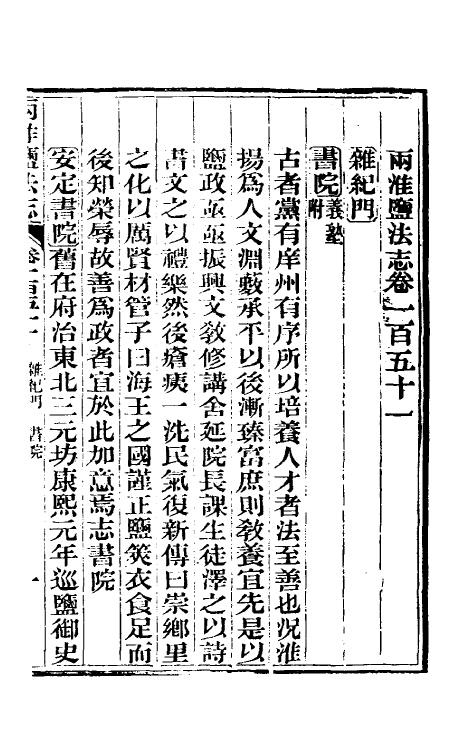 兩淮鹽法志卷一百五十一
雜紀門
書院義塾附
古者黨有庠州有序所以培養人才者法至善也況淮
揚爲人文淵藪承平以後漸臻富庶則敎養宜先是以
鹽政亟亟振興文敎修講舍延院長課生徒澤之以詩
書文之以禮樂然後瘡痍一洗民氣復新傳曰崇鄉里
之化以厲賢材管子曰海王之國謹正鹽筴衣食足而
後知榮辱故善爲政者宜於此加意焉志書院
安定書院舊在府治東北三元坊康熙元年巡鹽御史
兩淮鹽法志 卷一百五十一 雜紀門 書院 一